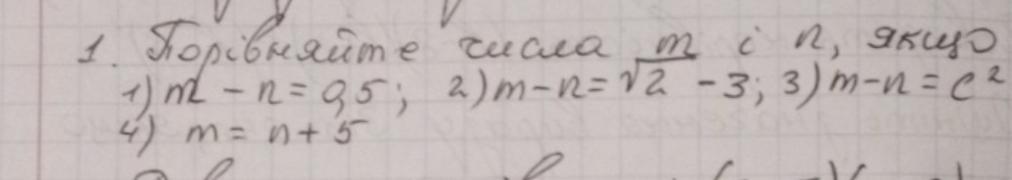 1. Порівняйте числа m і n, якщо
1) m - n = 0,5; 2) m - n = √2 - 3; 3) m - n = c²
4) m = n + 5